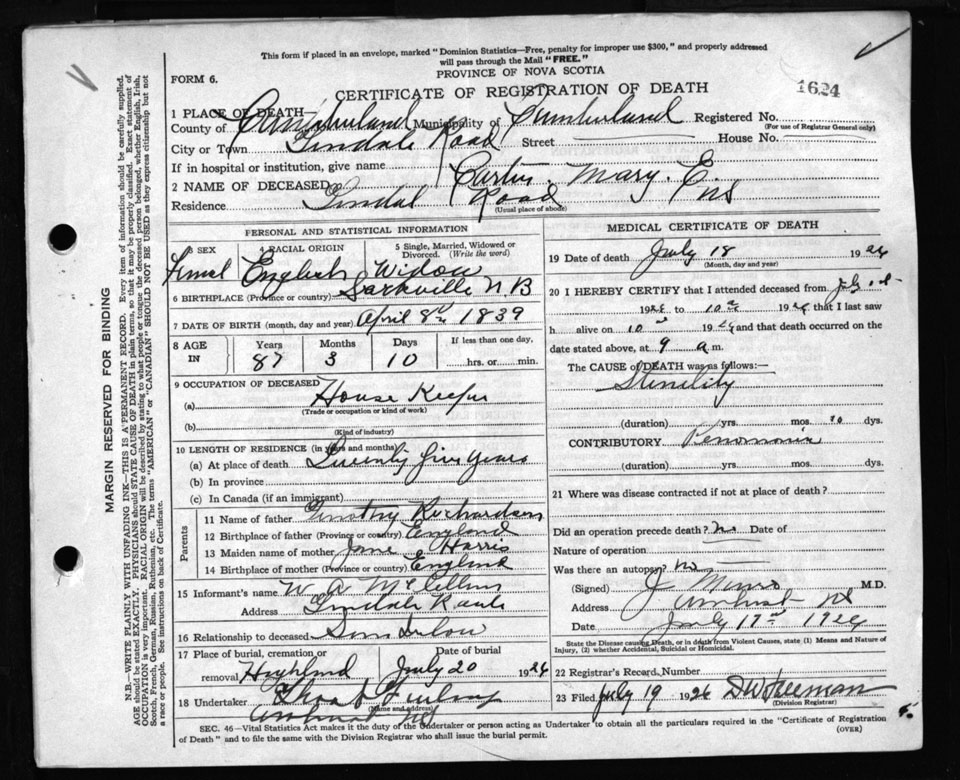 This form if placed in an envelope, marked "Dominion Statistics—Free, penalty for improper use $300," and properly addressed
will pass through the Mail "FREE."
PROVINCE OF NOVA SCOTIA
FORM 6.
CERTIFICATE OF REGISTRATION OF DEATH
1624
1 PLACE OF DEATH
County of Cumberland Municipality of Cumberland Registered No.
(For use of Registrar General only)
City or Town Tindale Road Street House No.
If in hospital or institution, give name
2 NAME OF DECEASED Curtis. Mary.
Residence Tindal Road
(Usual place of abode)
PERSONAL AND STATISTICAL INFORMATION
3 SEX 4 RACIAL ORIGIN 5 Single, Married, Widowed or Divorced. (Write the word)
Femel English Widow
6 BIRTHPLACE (Province or country) Sackville N.B
7 DATE OF BIRTH (month, day and year) April 8th 1839
8 AGE IN Years Months Days If less than one day.
87 3 10 hrs. or min.
9 OCCUPATION OF DECEASED
(a) House Keeper
(Trade or occupation or kind of work)
(b)
(Kind of industry)
10 LENGTH OF RESIDENCE (in years and months)
(a) At place of death Twenty five years
(b) In province
(c) In Canada (if an immigrant)
Parents
11 Name of father Timothy Richardson
12 Birthplace of father (Province or country) England
13 Maiden name of mother Jane Harris
14 Birthplace of mother (Province or country)
15 Informant's name W. A
Address Tindale
16 Relationship to deceased
17 Place of burial, cremation or removal Date of burial
Highland July 20 1926
18 Undertaker
(Name and address)
Amherst NS
MEDICAL CERTIFICATE OF DEATH
19 Date of death July 18 1926
(Month, day and year)
20 I HEREBY CERTIFY that I attended deceased from
1926 to 10th 1926 that I last saw
h alive on 10 1926 and that death occurred on the
date stated above, at 9 a.m.
The CAUSE of DEATH was as follows:—
(duration) yrs. mos. 10 dys.
CONTRIBUTORY
(duration) yrs. mos. dys.
21 Where was disease contracted if not at place of death?
Did an operation precede death? no Date of
Nature of operation
Was there an autopsy? no
(Signed) J Munro M.D.
Address Amherst NS
Date July 19th 1926
State the Disease causing Death, or in death from Violent Causes, state (1) Means and Nature of
Injury, (2) whether Accidental, Suicidal or Homicidal.
22 Registrar's Record Number
23 Filed July 19 1926 D W Freeman
(Division Registrar)
SEC. 46—Vital Statistics Act makes it the duty of the Undertaker or person acting as Undertaker to obtain all the particulars required in the "Certificate of Registration
of Death" and to file the same with the Division Registrar who shall issue the burial permit.
(OVER)
MARGIN RESERVED FOR BINDING
N.B.—WRITE PLAINLY WITH UNFADING INK—THIS IS A PERMANENT RECORD. Every item of information should be carefully supplied.
AGE should be stated EXACTLY. PHYSICIANS should STATE CAUSE OF DEATH in plain terms, so that it may be properly classified. Exact statement of
OCCUPATION is very important. RACIAL ORIGIN will be described by stating to what people or tongue the deceased person belonged, whether English, Irish,
Scotch, French, German, Russian, Ruthenian, etc. The terms "AMERICAN" or "CANADIAN" SHOULD NOT BE USED as they express citizenship but not
a race or people. See instructions on back of Certificate.